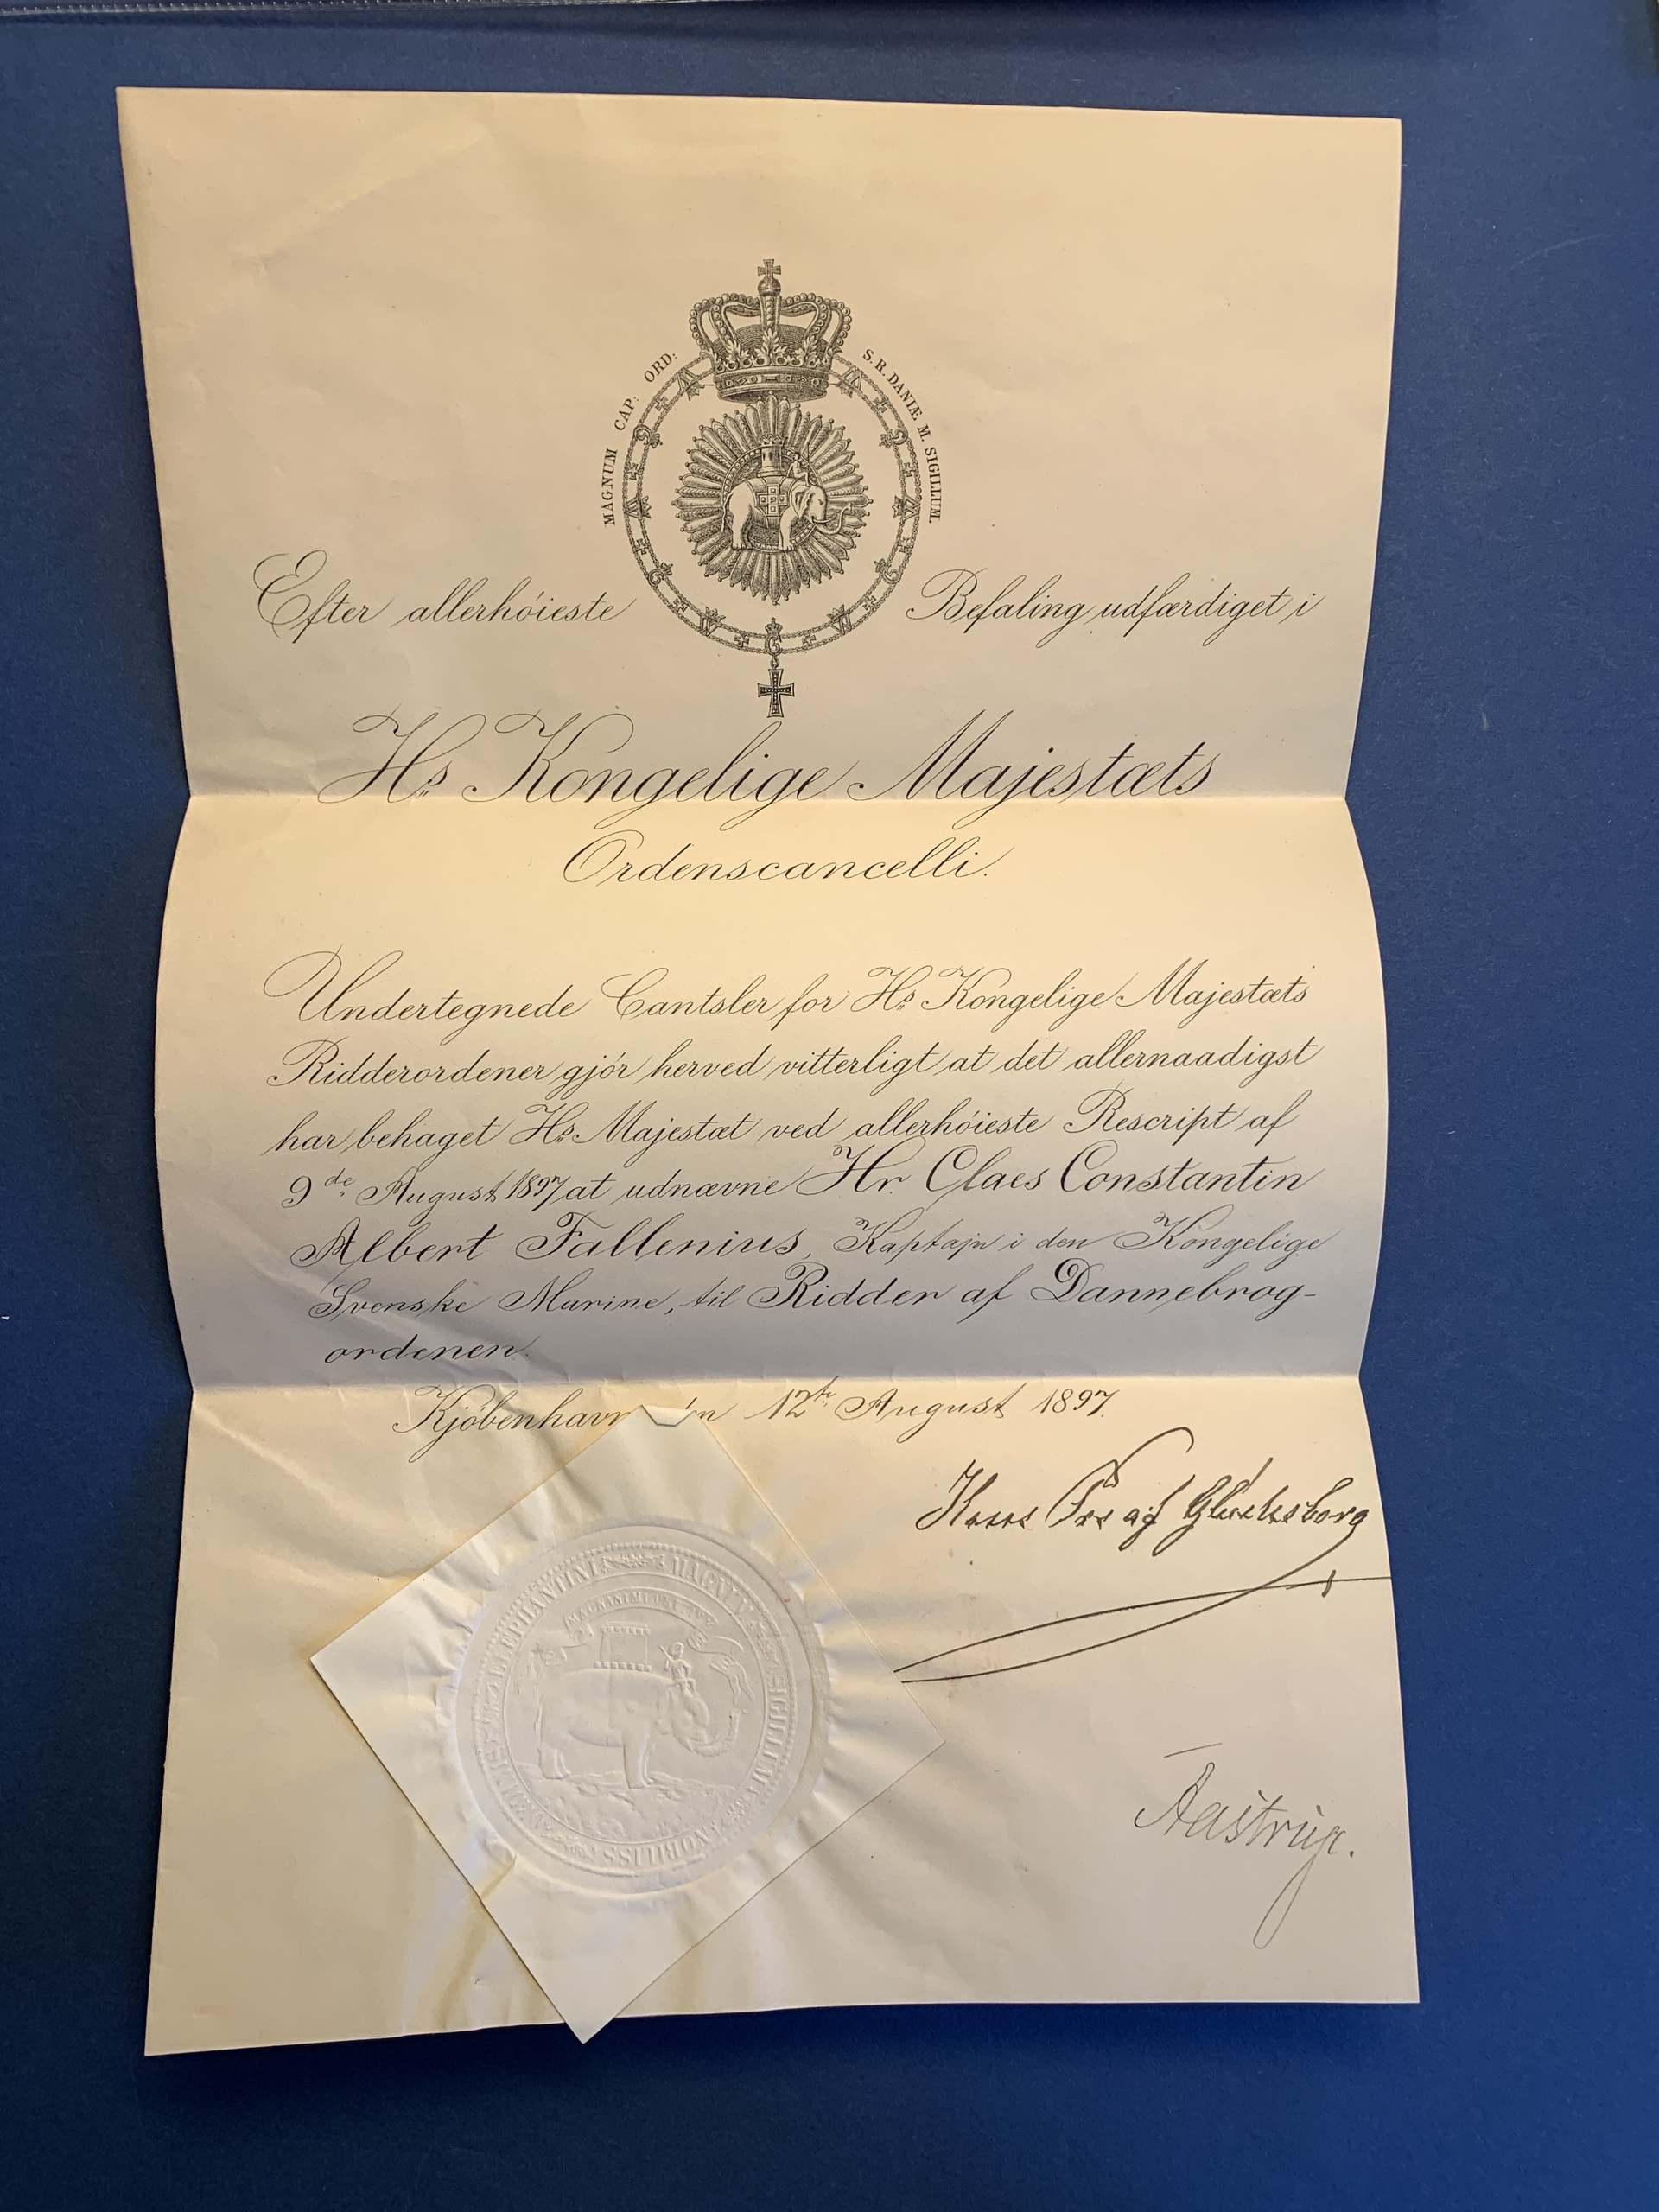 MAGNUM CAP: ORD: S. R. DANIÆ M. SIGILLUM.
Efter allerhóieste Befaling udfærdiget i
Hs Kongelige Majestæts
Ordenscancelli.
Undertegnede Cantsler for Hs Kongelige Majestæts
Ridderordener gjór herved vitterligt at det allernaadigst
har behaget Hs Majestæt ved allerhóieste Rescript af
9de August 1897 at udnævne Hr. Claes Constantin
Albert Fallenius, Kaptajn i den Kongelige
Svenske Marine, til Ridder af Dannebrog-
ordenen.
Kjóbenhavn 12te August 1897.
Hans Prs af Glücksborg
MAGNUM SIGILLUM NOBILISS ELEPHANTINI
Aastrup.